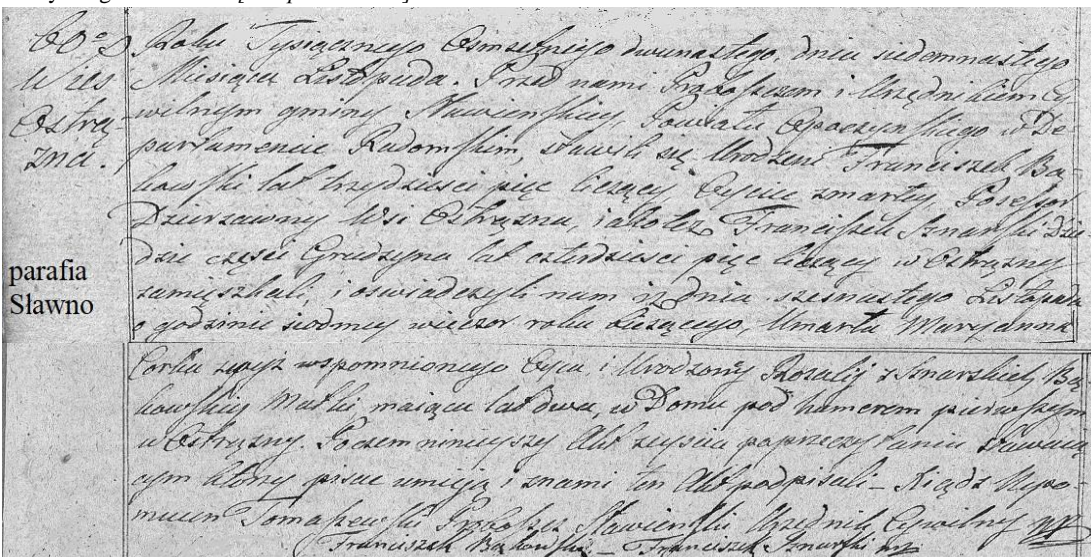 60º D
Wies
Ostrę-
zna.
parafia
Sławno
Roku Tysiącznego Osmsetnego dwunastego, dnia siedemnastego
Miesiąca Listopada. Przed nami Proboszczem i Urzędnikiem Cy
wilnym gminy Sławieńskiey, Powiatu Opoczynskiego w De-
partamencie Radomskim, stawili się Urodzeni Franciszek Bą-
kowski lat trzydziesci pięc liczący Oyciec zmarłey, Posessor
Dzierzawny Wsi Ostręzna, iako tez Franciszek Sznarski Dzie-
dzic części Grudzyna lat czterdziesci pięc liczący w Ostręzny
zamięszkali, i oswiadczyli nam iz dnia szesnastego Listopada
o godzinie siodmey wieczor roku biezącego, Umarła Maryanna
Corka zwyż wspomnionego Oyca i Urodzony Rozalij z Sznarskich Bą
kowskiey Matki, maiąca lat dwa, w Domu pod numerem pierwszym
w Ostręzny. Poczem ninieyszy Akt zeyscia poprzeczytaniu Stawaią
cym ktorzy pisac umieją i znami ten Akt podpisali – Xiądz Nepo-
mucen Tomaszewski Proboszcz Sławieński Urzędnik Cywilny mp
Franciszek Bąkowski – Franciszek Sznarski mp